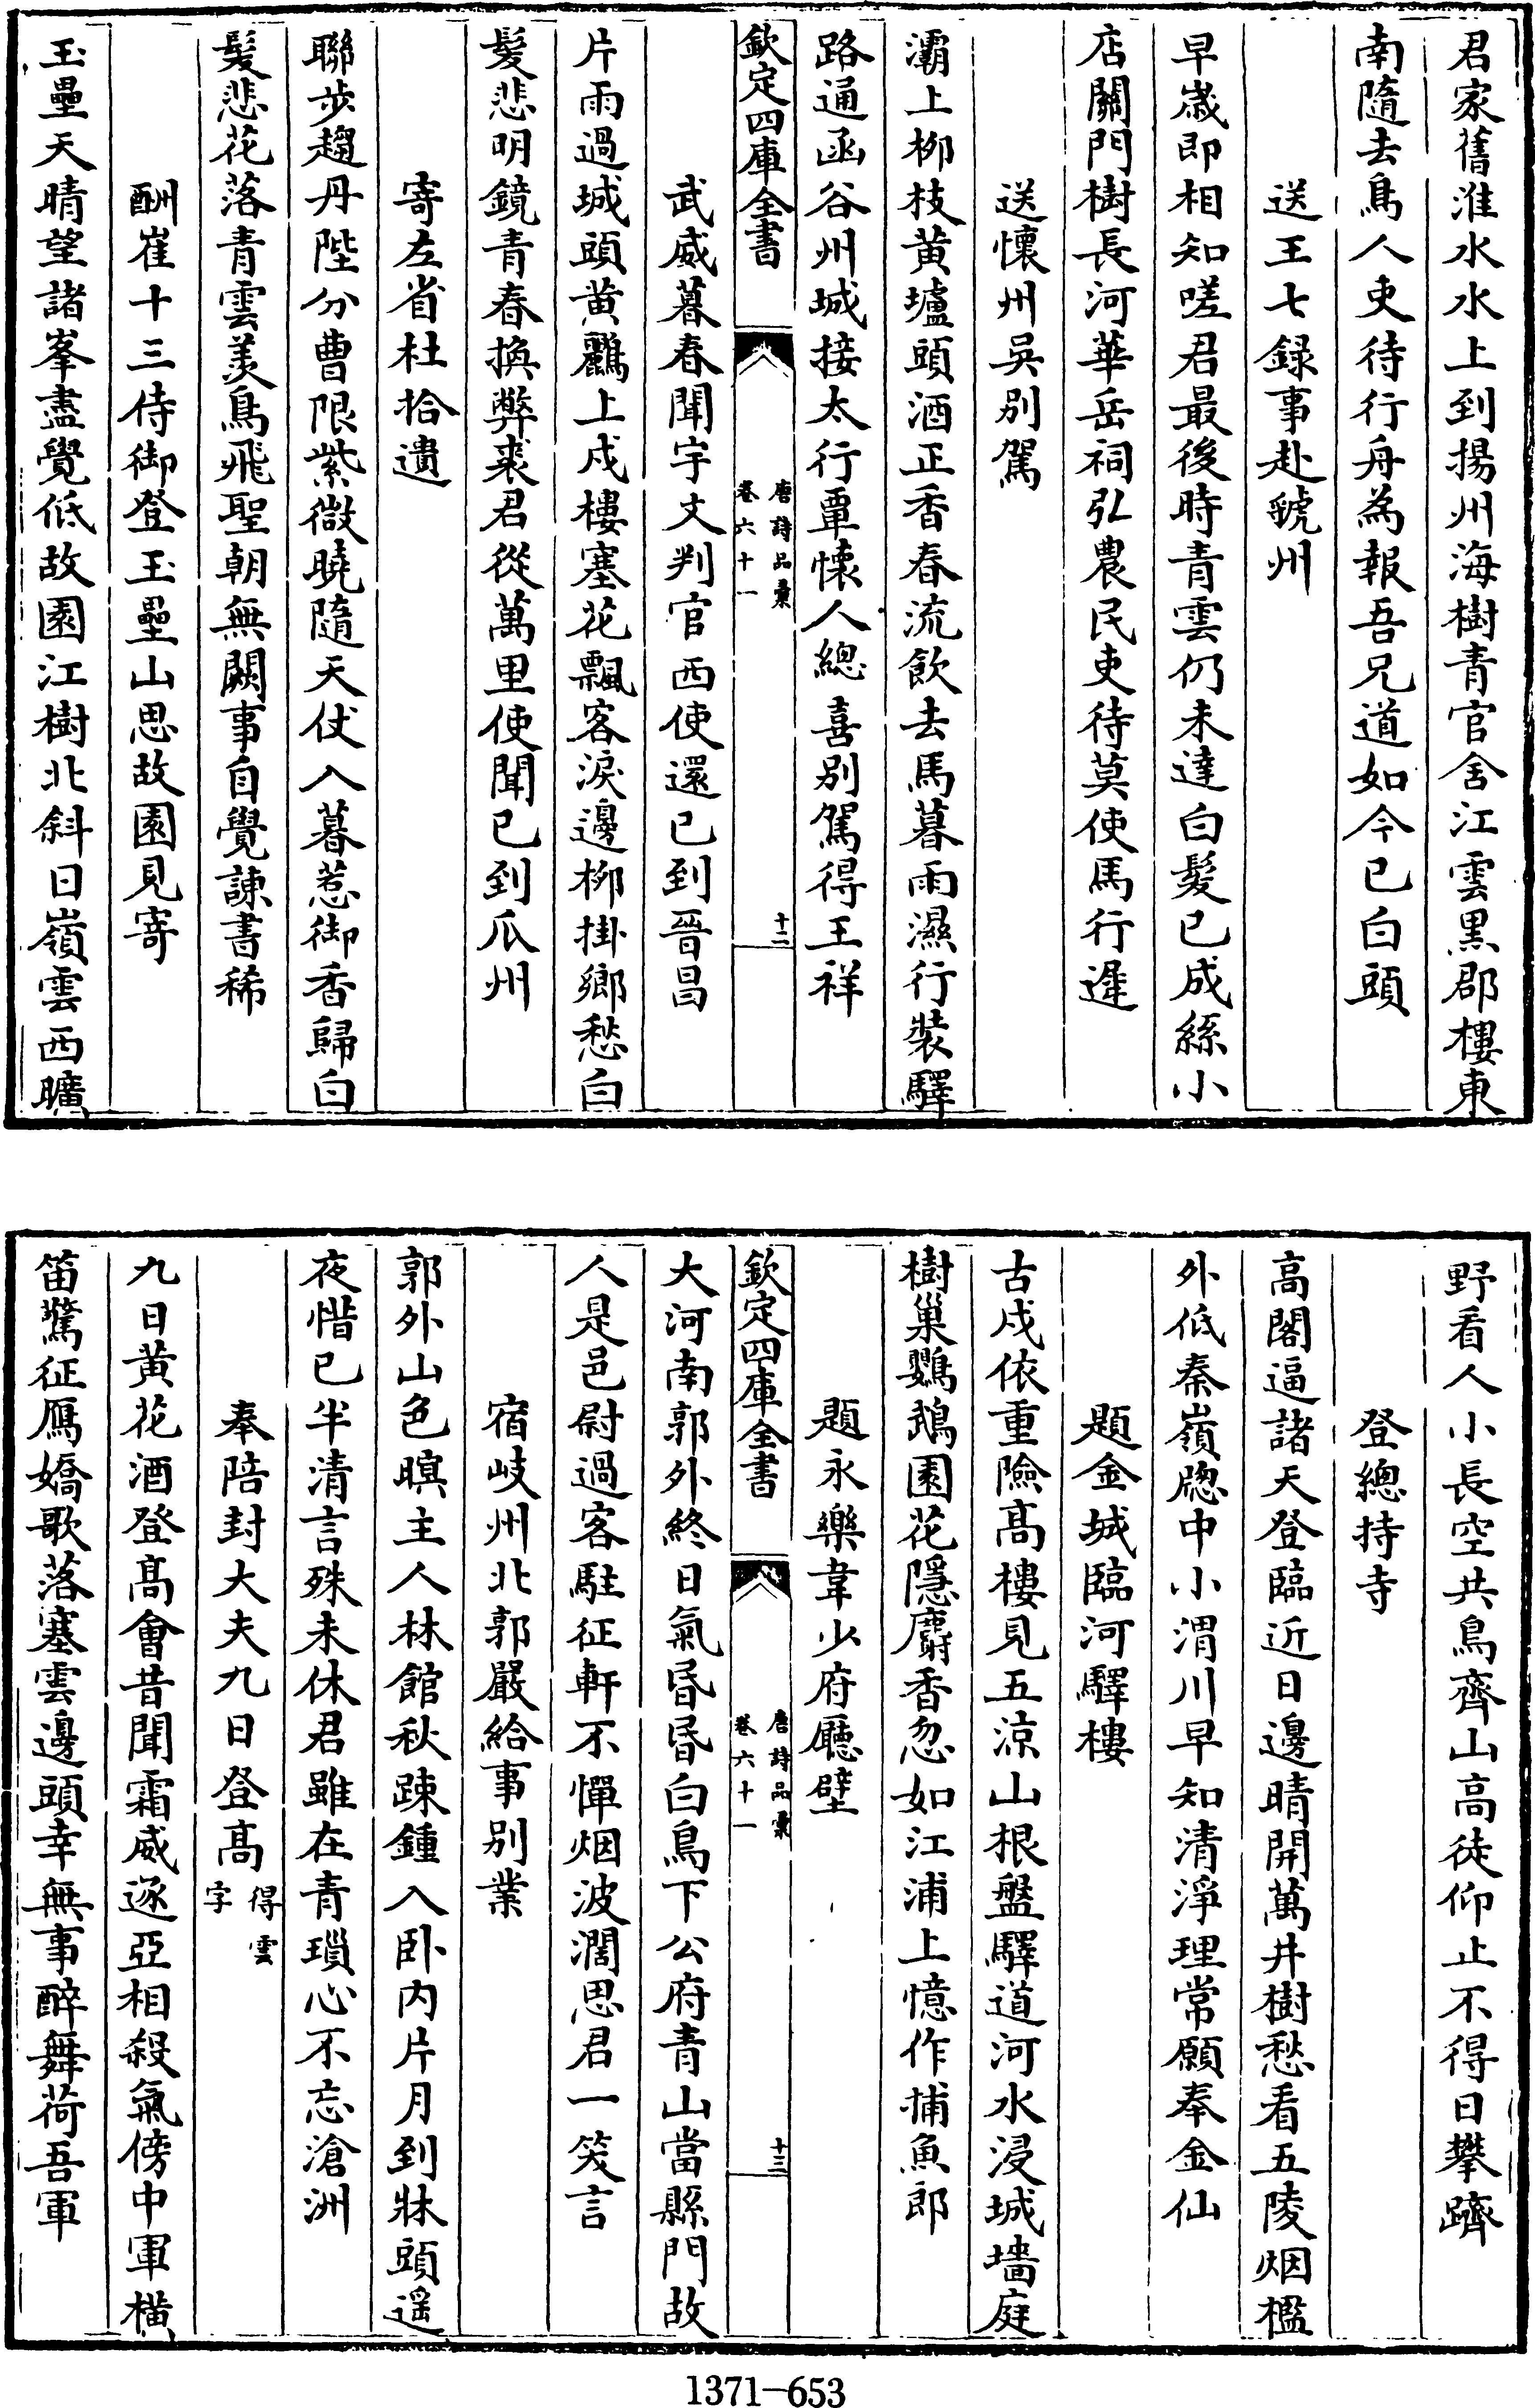 君家舊淮水水上到揚州海樹青官舍江雲黒郡樓東
南隨去鳥人吏待行舟為報吾兄道如今已白頭
送王七録事赴虢州
早歳即相知嗟君最後時青雲仍未達白髮已成絲小
店關門樹長河華岳祠弘農民吏待莫使馬行遲
送懷州吳别駕
灞上柳枝黄壚頭酒正香春流飲去馬暮雨濕行装驛
路通函谷州城接太行覃懐人總喜别駕得王祥
欽定四庫全書
唐詩品彚
卷六十一
十二
武威暮春聞宇文判官西使還已到晉昌
片雨過城頭黄鸝上戍樓塞花飄客淚邊柳掛鄉愁白
髮悲明鏡青春換弊裘君從萬里使聞已到瓜州
寄左省杜拾遺
聯步趨丹陛分曹限紫微曉隨天仗入暮惹御香歸白
髮悲花落青雲羡鳥飛聖朝無闕事自覺諫書稀
酬崔十三侍御登玉壘山思故園見寄
玉壘天晴望諸峯盡覺低故園江樹北斜日嶺雲西曠
野看人小長空共鳥齊山高徒仰止不得日攀躋
登總持寺
高閣逼諸天登臨近日邊晴開萬井樹愁看五陵烟檻
外低秦嶺牎中小渭川早知清淨理常願奉金仙
題金城臨河驛樓
古戍依重險髙樓見五涼山根盤驛道河水浸城墻庭
樹巢鸚鵡園花隠麝香忽如江浦上憶作捕魚郎
題永樂韋少府廳壁
欽定四庫全書
唐詩品彚
卷六十一
十三
大河南郭外終日氣昏昏白鳥下公府青山當縣門故
人是邑尉過客駐征軒不憚烟波濶思君一笑言
宿岐州北郭嚴給事别業
郭外山色暝主人林館秋疎鍾入卧内片月到牀頭遥
夜惜已半清言殊未休君雖在青瑣心不忘滄洲
奉陪封大夫九日登髙得雲字
九日黄花酒登髙會昔聞霜威逐亞相殺氣傍中軍横
笛驚征鴈嬌歌落塞雲邊頭幸無事醉舞荷吾軍
1371-653